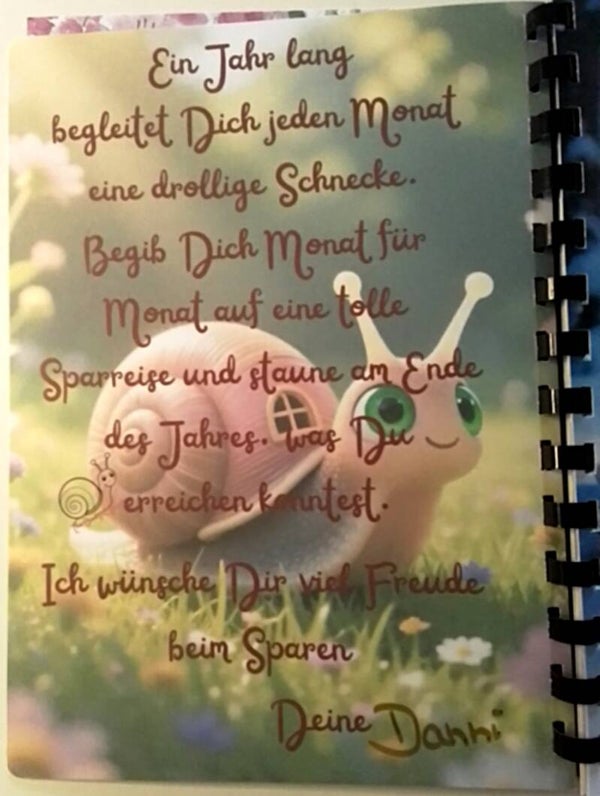 Ein Jahr lang
begleitet Dich jeden Monat
eine drollige Schnecke.
Begib Dich Monat für
Monat auf eine tolle
Sparreise und staune am Ende
des Jahres. was Du
erreichen konntest.
Ich wünsche Dir viel Freude
beim Sparen
Deine Danni